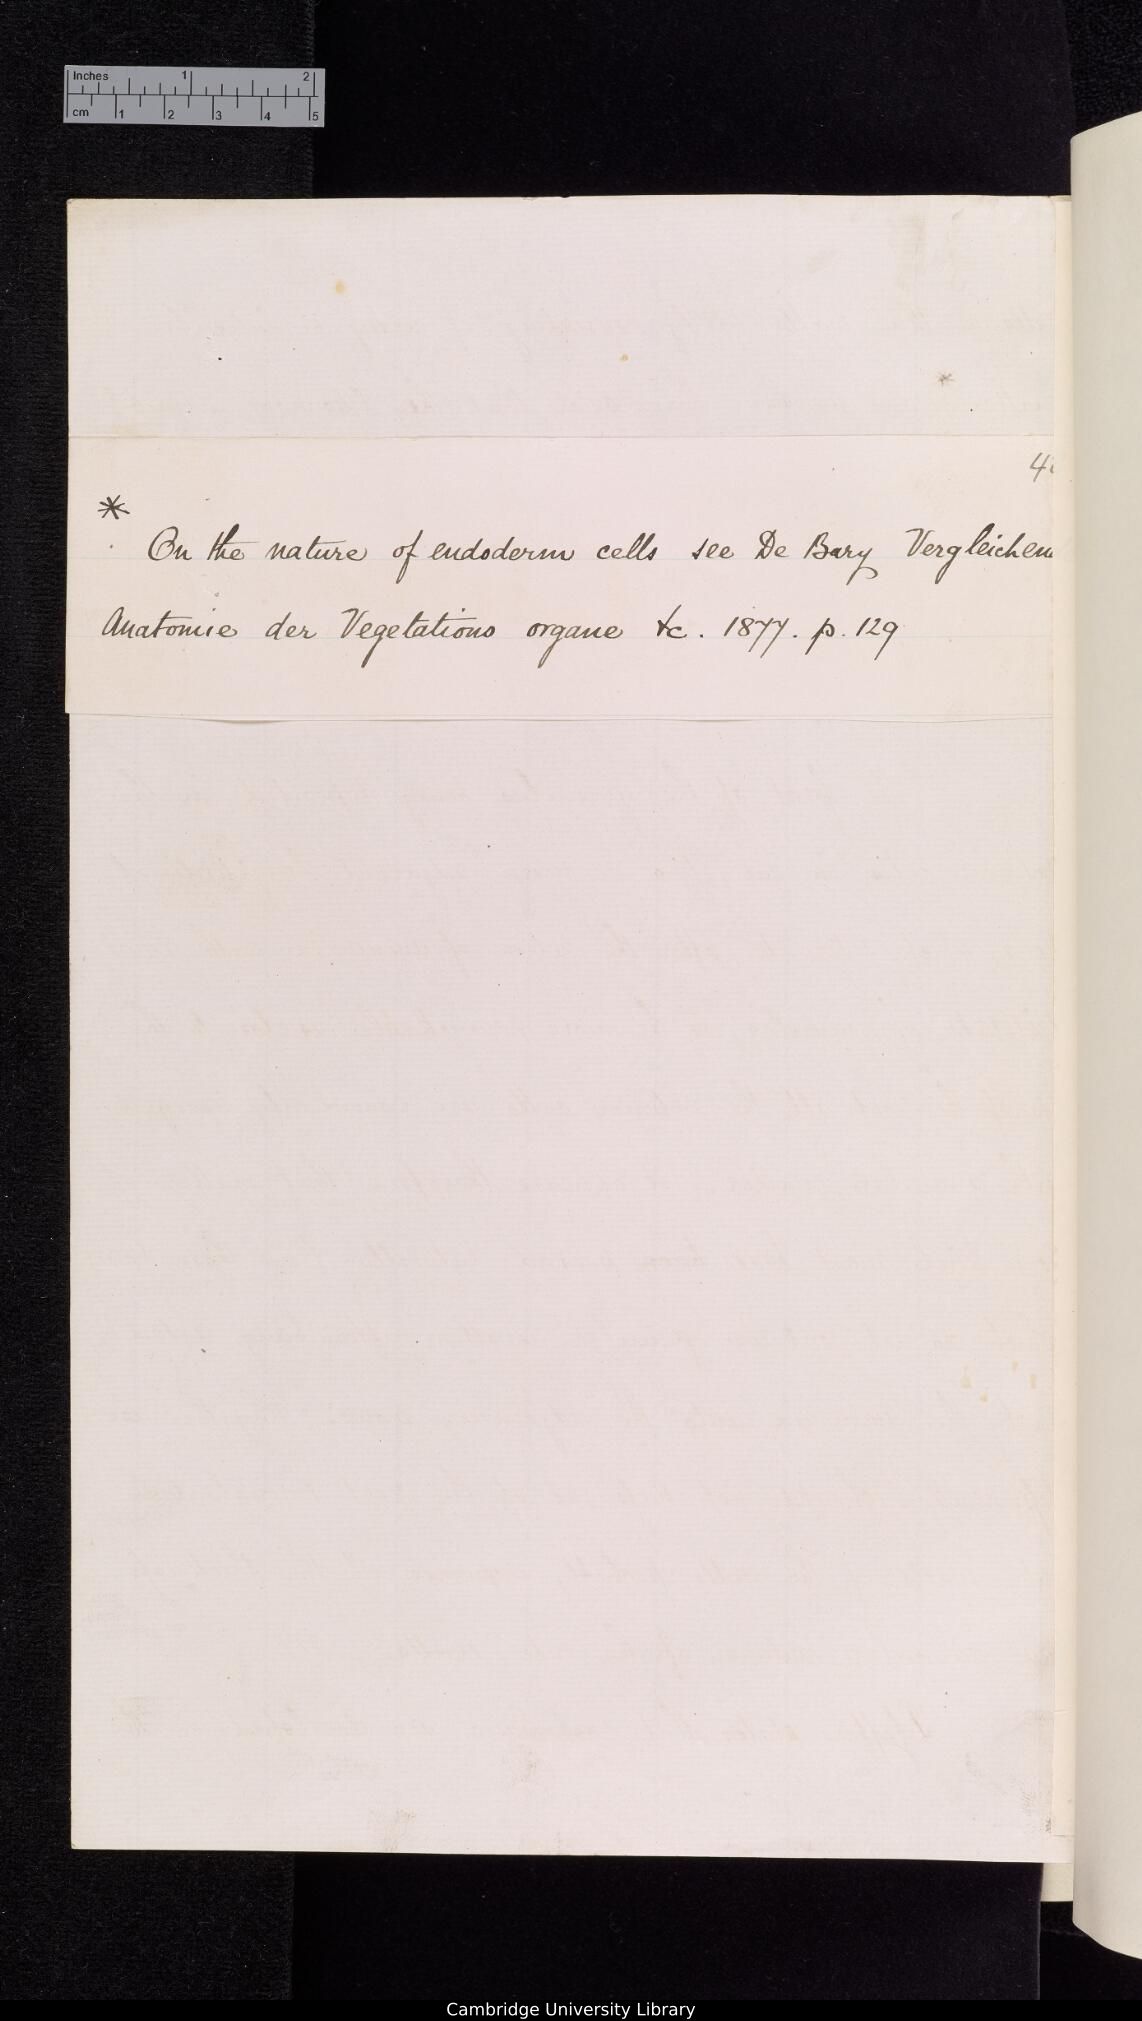 Inches 1 2
cm 1 2 3 4 5
*
4
*
On the nature of endoderm cells see De Bary Vergleichen
Anatomie der Vegetations organe &c. 1877. p. 129
Cambridge University Library